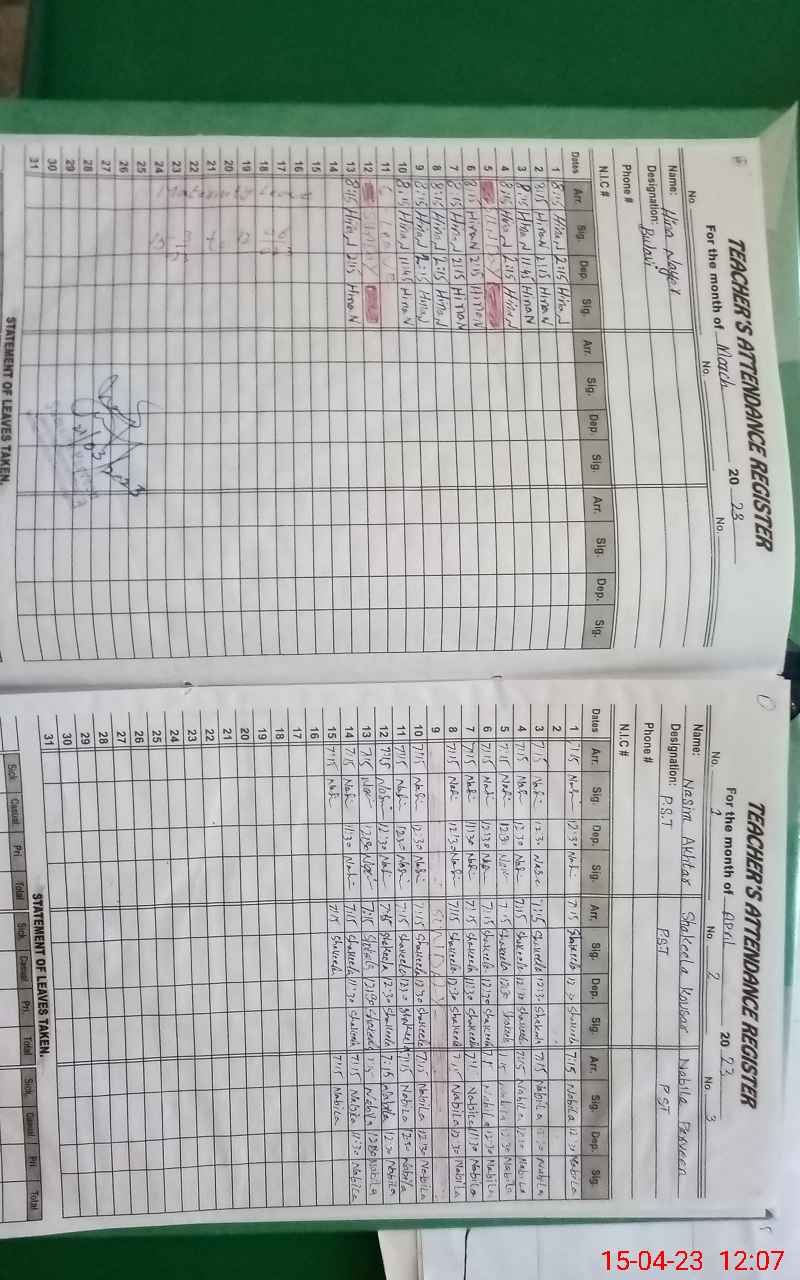 TEACHER'S ATTENDANCE REGISTER
For the month of March 2023
No. No. No.
Name: Hina Nayer
Designation: Bulavi
Phone #
N.I.C #
Dates Arr. Sig. Dep. Sig. Arr. Sig. Dep. Sig. Arr. Sig. Dep. Sig.
1 8:15 Hina N 2:15 Hina N
2 8:15 Hina N 2:15 Hina N
3 8:15 Hina N 11:45 Hina N
4 8:15 Hina N 2:15 Hina N
5 SUNDAY
6 8:15 Hina N 2:15 Hina N
7 8:15 Hina N 2:15 Hina N
8 8:15 Hina N 2:15 Hina N
9 8:15 Hina N 2:15 Hina N
10 8:15 Hina N 11:45 Hina N
11 Leave
12 SUNDAY
13 8:15 Hina N 2:15 Hina N
14
15
16
17
18
19
20
21
22
23
24
25
26
27
28
29
30
31
STATEMENT OF LEAVES TAKEN.
TEACHER'S ATTENDANCE REGISTER
For the month of April 2023
No. 1 No. 2 No. 3
Name: Nasim Akhtar Shakeela Kousar Nabila Parveen
Designation: P.S.T PST PST
Phone #
N.I.C #
Dates Arr. Sig. Dep. Sig. Arr. Sig. Dep. Sig. Arr. Sig. Dep. Sig.
1 7:15 12:30 7:15 Shakeela 12:30 Shakeela 7:15 Nabila 12:30 Nabila
2
3 7:15 12:30 7:15 Shakeela 12:30 Shakeela 7:15 Nabila 12:30 Nabila
4 7:15 12:30 7:15 Shakeela 12:30 Shakeela 7:15 Nabila 12:30 Nabila
5 7:15 12:30 7:15 Shakeela 12:30 Shakeela 7:15 Nabila 12:30 Nabila
6 7:15 12:30 7:15 Shakeela 12:30 Shakeela Nabila 12:30 Nabila
7 7:15 11:30 7:15 Shakeela 11:30 Shakeela Nabila 11:30 Nabila
8 7:15 12:30 7:15 Shakeela 12:30 Shakeela 7:15 Nabila 12:30 Nabila
9 SUNDAY
10 7:15 12:30 7:15 Shakeela 12:30 Shakeela 7:15 Nabila 12:30 Nabila
11 7:15 12:30 7:15 Shakeela 12:30 Shakeela 7:15 Nabila 12:30 Nabila
12 7:15 12:30 7:15 Shakeela 12:30 Shakeela 7:15 Nabila 12:30 Nabila
13 7:15 12:30 7:15 Shakeela 12:30 Shakeela 7:15 Nabila 12:30 Nabila
14 7:15 11:30 7:15 Shakeela 11:30 Shakeela 7:15 Nabila 11:30 Nabila
15 7:15 7:15 Shakeela 7:15 Nabila
16
17
18
19
20
21
22
23
24
25
26
27
28
29
30
31
STATEMENT OF LEAVES TAKEN.
Sick Casual Pri Total Sick Casual Pri. Total Sick Casual Pri Total
15-04-23 12:07